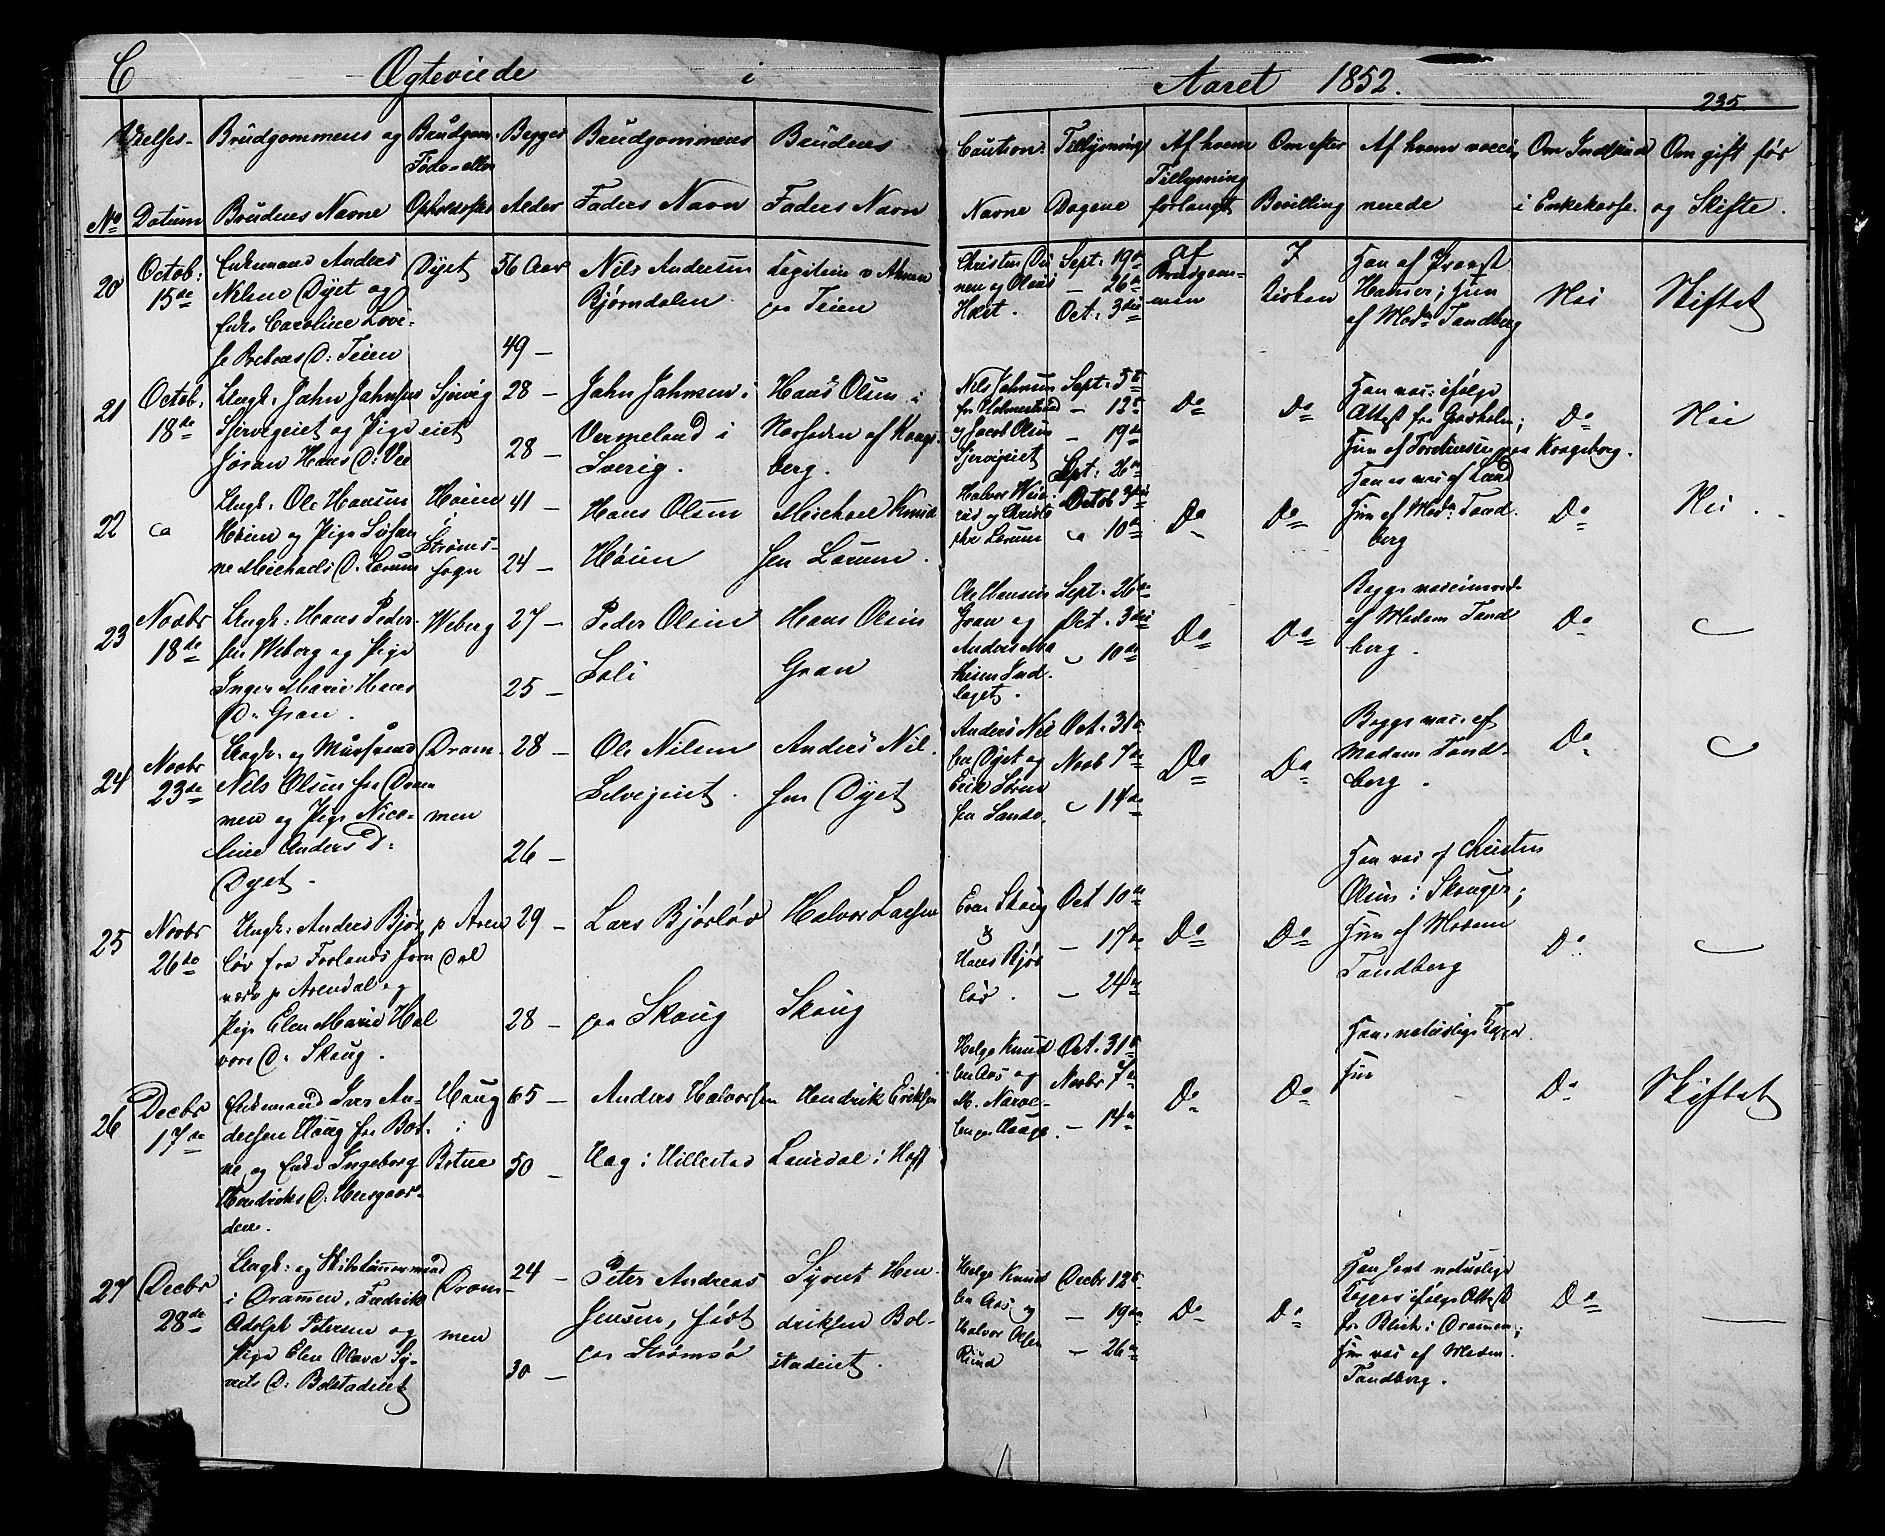 C Ægteviede i Aaret 1852.
235.
Vielses-
No Datum
Brudgommens og
Brudens Navne
Brudgom.
Føde- eller
Opholdssted
Begges
Alder
Brudgommens
Faders Navn
Brudens
Faders Navn
Caution.
Navne
Tillysnings
Dagene
Af hvem
Tillysning
forlangt
Om efter
Bevilling
Af hvem vacci-
nerede
Om Indskud
i Enkekasse.
Om gift før
og Skifte.
20
Octob:
15de
Enkemand Anders
Nilsen Dyet og
Enke Caroline Lovi-
se D: Teien
Dyet
56 Aar
49 —
Nils Andersen
Bjørndalen
paa Teien
Sept: 19de
— 26de
Oct: 3die
af
Brudgom-
men
I
Kirken
Han af Provst
Hanser; hun
af Mad: Tandberg
Nei
Skiftet
21
Octob.
18de
Ungk: Jahn Jahnsen
Sjervigeiet og Pige
Jøran Hans D:
Sjervig
eiet
28 —
28 —
Jahn Jahnsen i
Vermeland i
Sverig.
Hans Olsen i
af Kongs-
berg.
Nils Jahnsen
fra Holmestrand
og Jacob Olsen
Sjervigeiet
Sept: 5te
— 12te
— 19de
Do
Do
Han vac: ifølge
Attest fra
hun af Kongsberg.
Do
Nei
22
Ungk: Ole Hansen
Høien og Pige Johan-
ne Michaels D. Lerum
Høien
i
Strøms-
sogn
41 —
24 —
Hans Olsen
Høien
Michael Knud
sen Lerum.
Sept: 26de
Octob 3die
10de
Do
Do
hun af Mad: Tand-
berg
Do
Nei
23
Novbr
18de
Ungk: Hans Peder-
sen Weberg og Pige
Inger Marie Hans
D. Gran.
Weberg
27 —
25 —
Peder Olsen
Loli
Hans Olsen
Gran
Ole Hansen
Gran og
Anders
Sept: 26de
Oct. 3die
10de
Do
Do
Begge
af Madam Tand
berg.
Do
24
Novbr
23de
Ungk: og Muursvend
Nils Olsen fra Dram
men og Pige Nico-
line Anders D:
Dyet.
Dram-
men
28 —
26 —
Ole Nilsen
Selvigeiet.
Anders Nil-
sen Dyet
Anders Nil
sen Dyet og
Erik Søren
sen Sande.
Oct. 31te
Novb 7de
14de
Do
Do
Begge vac: af
Madam Tand-
berg.
Do
25
Novbr
26de
Ungk: Anders Bjør-
løv fra Frolands Jern
værk p Arendal og
Pige Elen Marie Hal
vors D. Skoug.
p Aren
dal
29 —
28 —
Lars Bjørløv
paa Skoug
Halvor Larsen
Skoug
Even Skoug
&
Hans Bjør
løv.
Oct 10de
— 17de
— 24de
Do
Do
Han vac af Christen
Olsen i Skouger;
hun af Madam
Tandberg
Do
26
Decbr
17de
Enkemand Iver An-
dersen Houg fra Bot-
ne og Enke Ingeborg
Hendriks D:
Houg
i
Botne
65 —
50 —
Anders Halvorsen
Hag i Hillestad
Hendrik Eriksen
i Hoff
Helge Knud
sen Aas og
Oct. 31te
Novbr 7de
— 14de
Do
Do
Han naturlige Kopper.
hun
Do
Skiftet
27
Decbr
28de
Ungk: og Skibstømmermand
i Dramen, Fredrik
Adolph Petersen og
Pige Elen Olava Sy-
verts D: Bolstadeiet
Dram-
men
24 —
30 —
Peter Andreas
Jensen, født
paa Strømsø
Syvert Hen-
driksen Bol-
stadeiet.
Helge Knud
sen Aas og
Halvor Olsen
Rud
Decbr 12te
— 19de
— 26de
Do
Do
Han havt naturlige
Kopper ifølge Attest
fra Blich i Drammen;
hun vac af Madm.
Tandberg.
Do